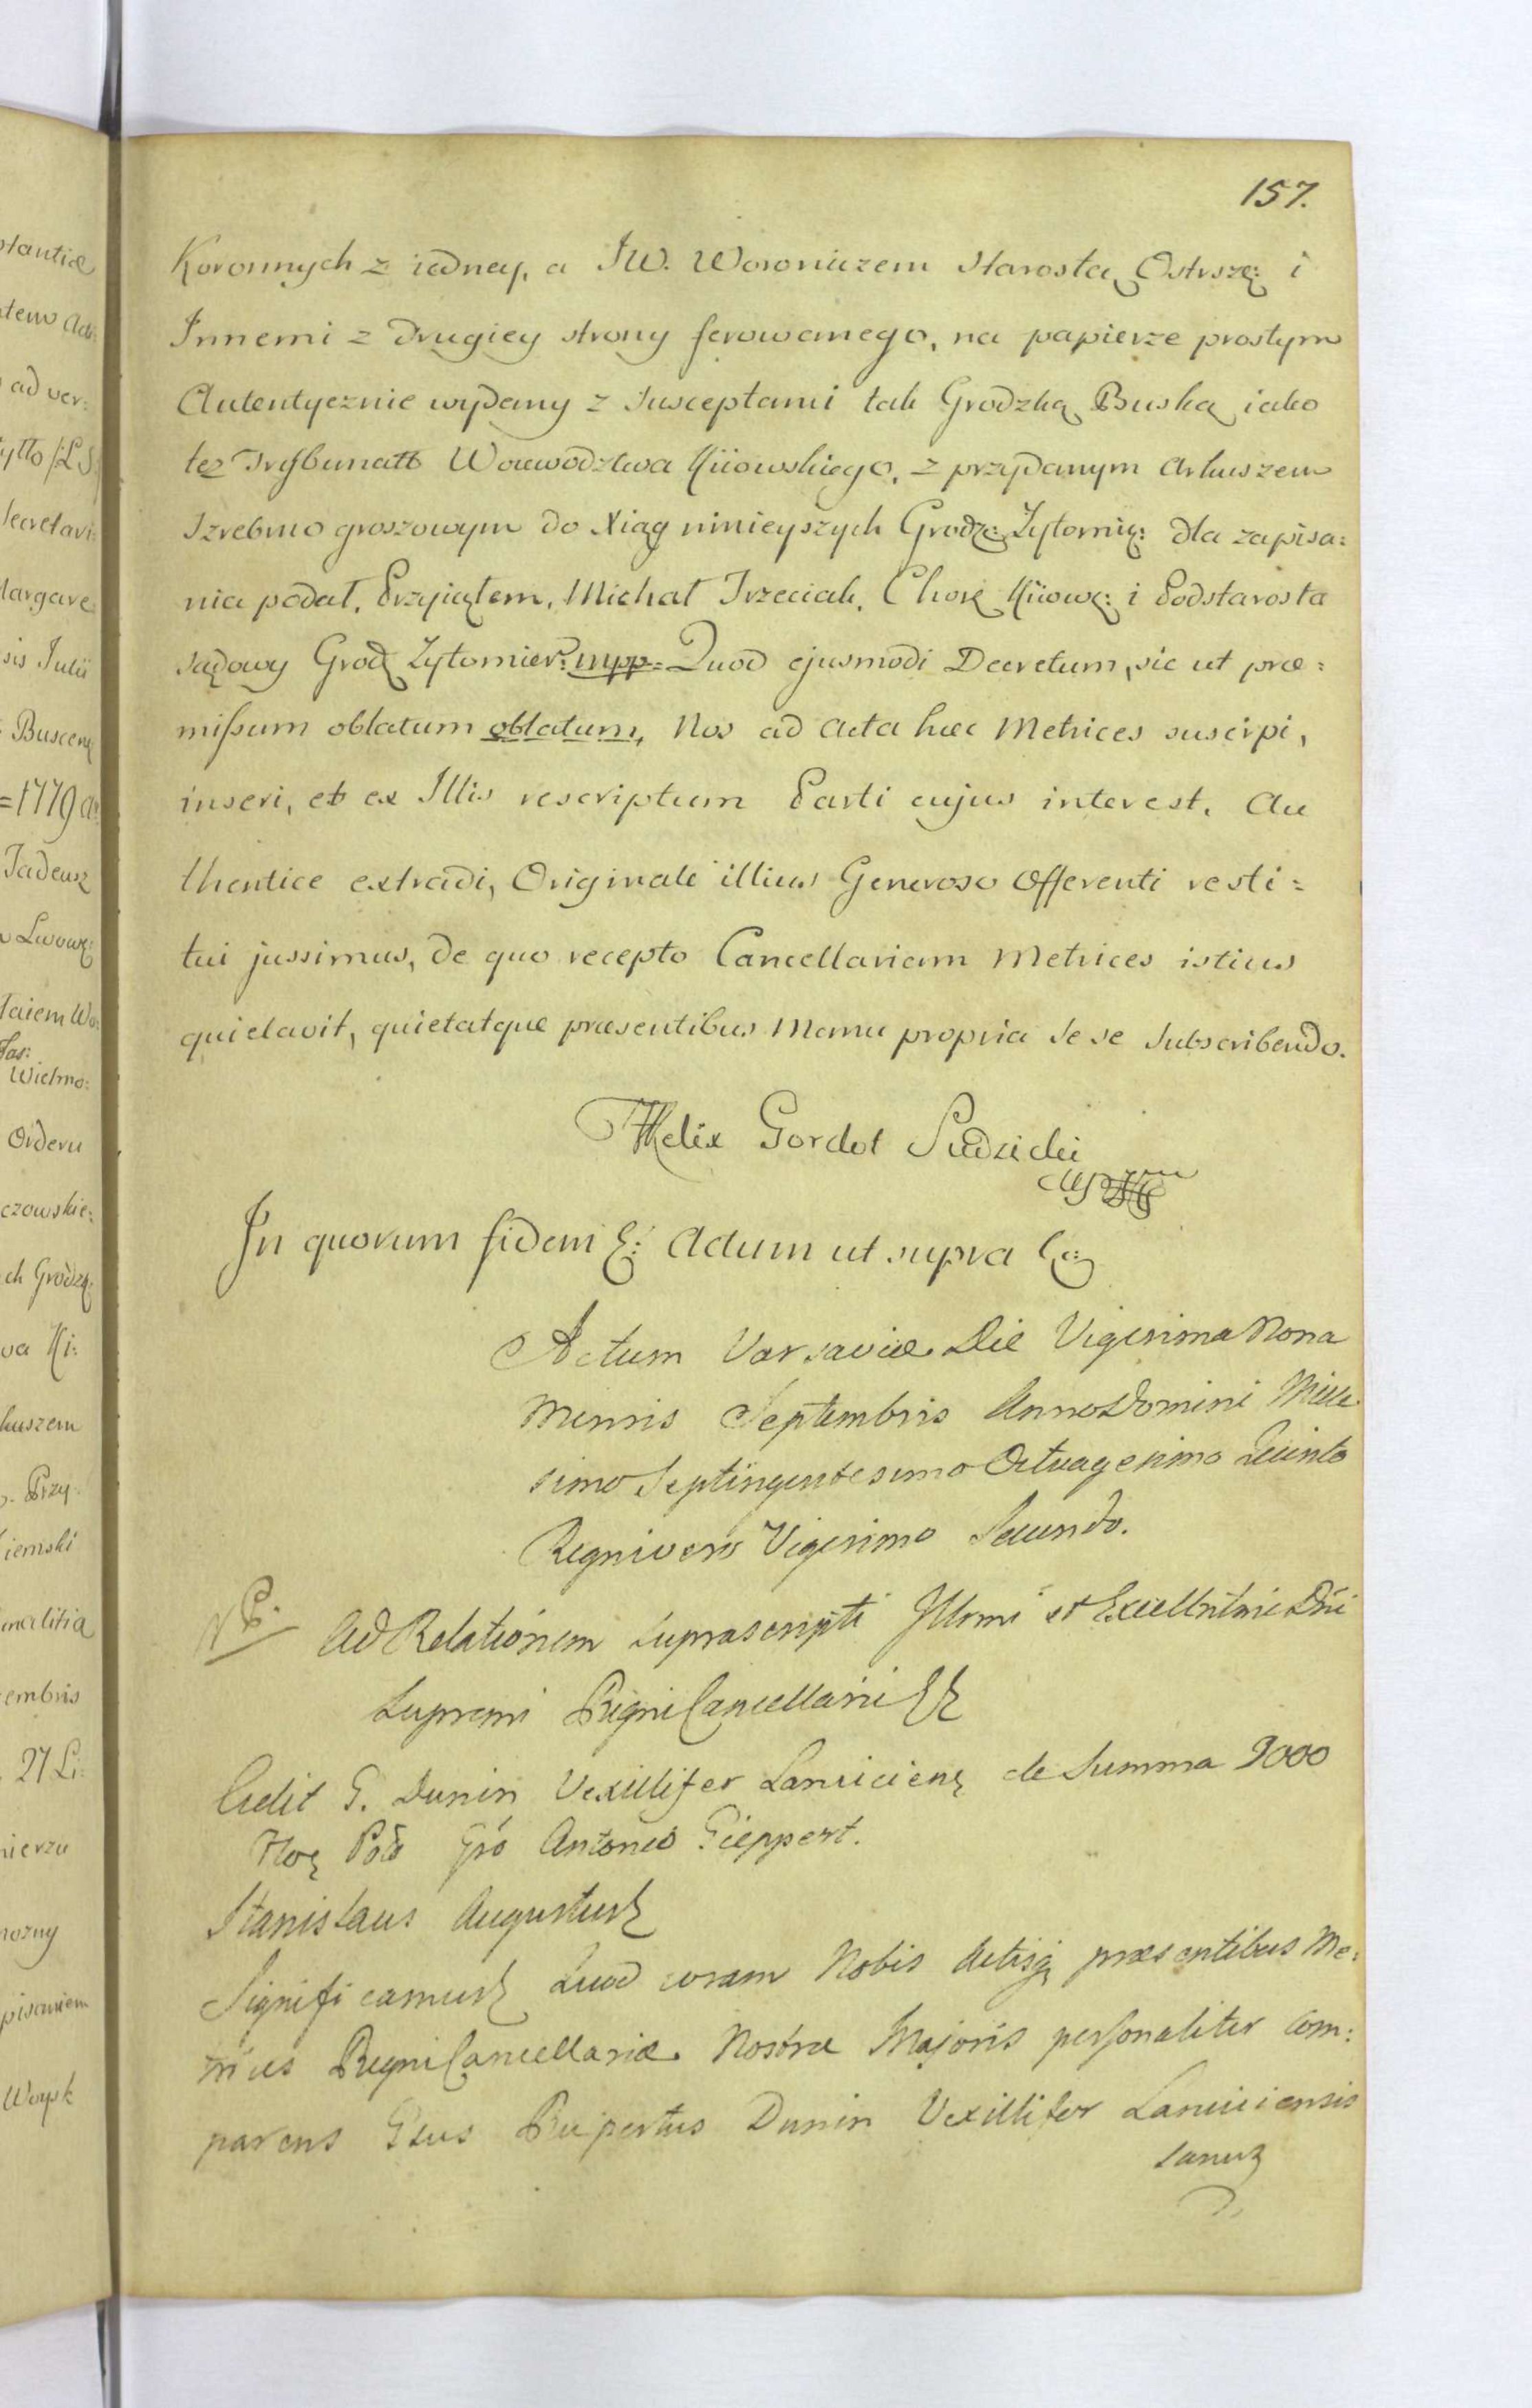 157.
Koronnych z iedney, a JW. Woroniczem Starostą Ostrszę: i
Innemi z drugiey strony ferowanego, na papierze prostym
Autentycznie wydany z Susceptami tak Grodzką Buską iako
tez Trybunatt Woiewodztwa Kiiowskiego, z przydanym Arkuszem
Srebrno groszowym do Xiąg ninieyszych Grodz: Zytomir: dla zapisa:
nia podał, Przyiąłem, Michał Trzeciak, Chorą Kiiowę: i Podstarosta
sądowy Grod Zytomier: mpp= Quod ejusmodi Decretum, sic ut præ:
missum oblatum oblatum, Nos ad Acta hæc Metrices suscipi,
inseri, et ex Illis rescriptum Parti cujus interest, Au
thentice extradi, Originale illius Generoso Offerenti resti=
tui jussimus, de quo recepto Cancellariam Metrices istius
quietavit, quietatque præsentibus Manu propria se se Subscribendo.
Fhelix Gordot Sudzicki
mpp
In quorum fidem &: Actum ut supra &:
Actum Varsaviæ Die Vigesima Nona
Mensis Septembris Anno Domini Mille
simo Septingentesimo Octuagesimo Quinto
Regni vero Vigesimo Secundo.
NB. Ad Relationem suprascripti Illmi et Excellntmi Dni
Supremi Regni Cancellarii &&
Cedit G. Dunin Vexillifer Lanciciens de Summa 9000
Flor Pol Gso Antonio Gieppert.
Stanislaus Augustus &
Significamus & Quod coram Nobis Actisq præsentibus Me:
trices Regni Cancellariæ Nostræ Majoris personaliter com:
parens Gsus Rupertus Dunin Vexillifer Lanciciensis
sanus